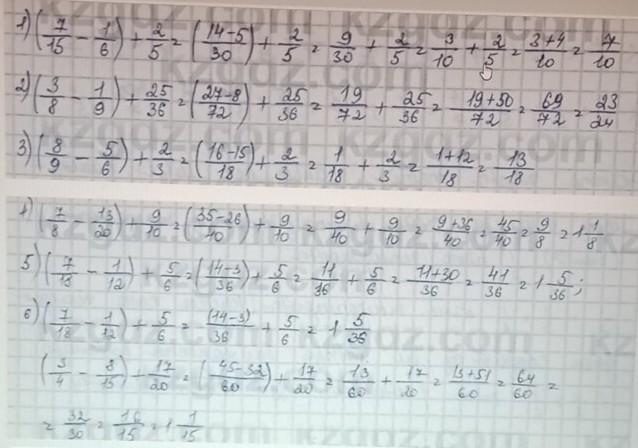 1) (7/15 - 1/6) + 2/5 = (14-5/30) + 2/5 = 9/30 + 2/5 = 3/10 + 2/5 = 3+4/10 = 7/10
2) (3/8 - 1/9) + 25/36 = (27-8/72) + 25/36 = 19/72 + 25/36 = 19+50/72 = 69/72 = 23/24
3) (8/9 - 5/6) + 2/3 = (16-15/18) + 2/3 = 1/18 + 2/3 = 1+12/18 = 13/18
4) (7/8 - 13/20) + 9/10 = (35-26/40) + 9/10 = 9/40 + 9/10 = 9+36/40 = 45/40 = 9/8 = 1 1/8
5) (7/18 - 1/12) + 5/6 = (14-3/36) + 5/6 = 11/36 + 5/6 = 11+30/36 = 41/36 = 1 5/36;
6) (7/18 - 1/12) + 5/6 = (14-3)/36 + 5/6 = 1 5/36
(3/4 - 8/15) + 17/20 = (45-32/60) + 17/20 = 13/60 + 17/20 = 13+51/60 = 64/60 =
= 32/30 = 16/15 = 1 1/15